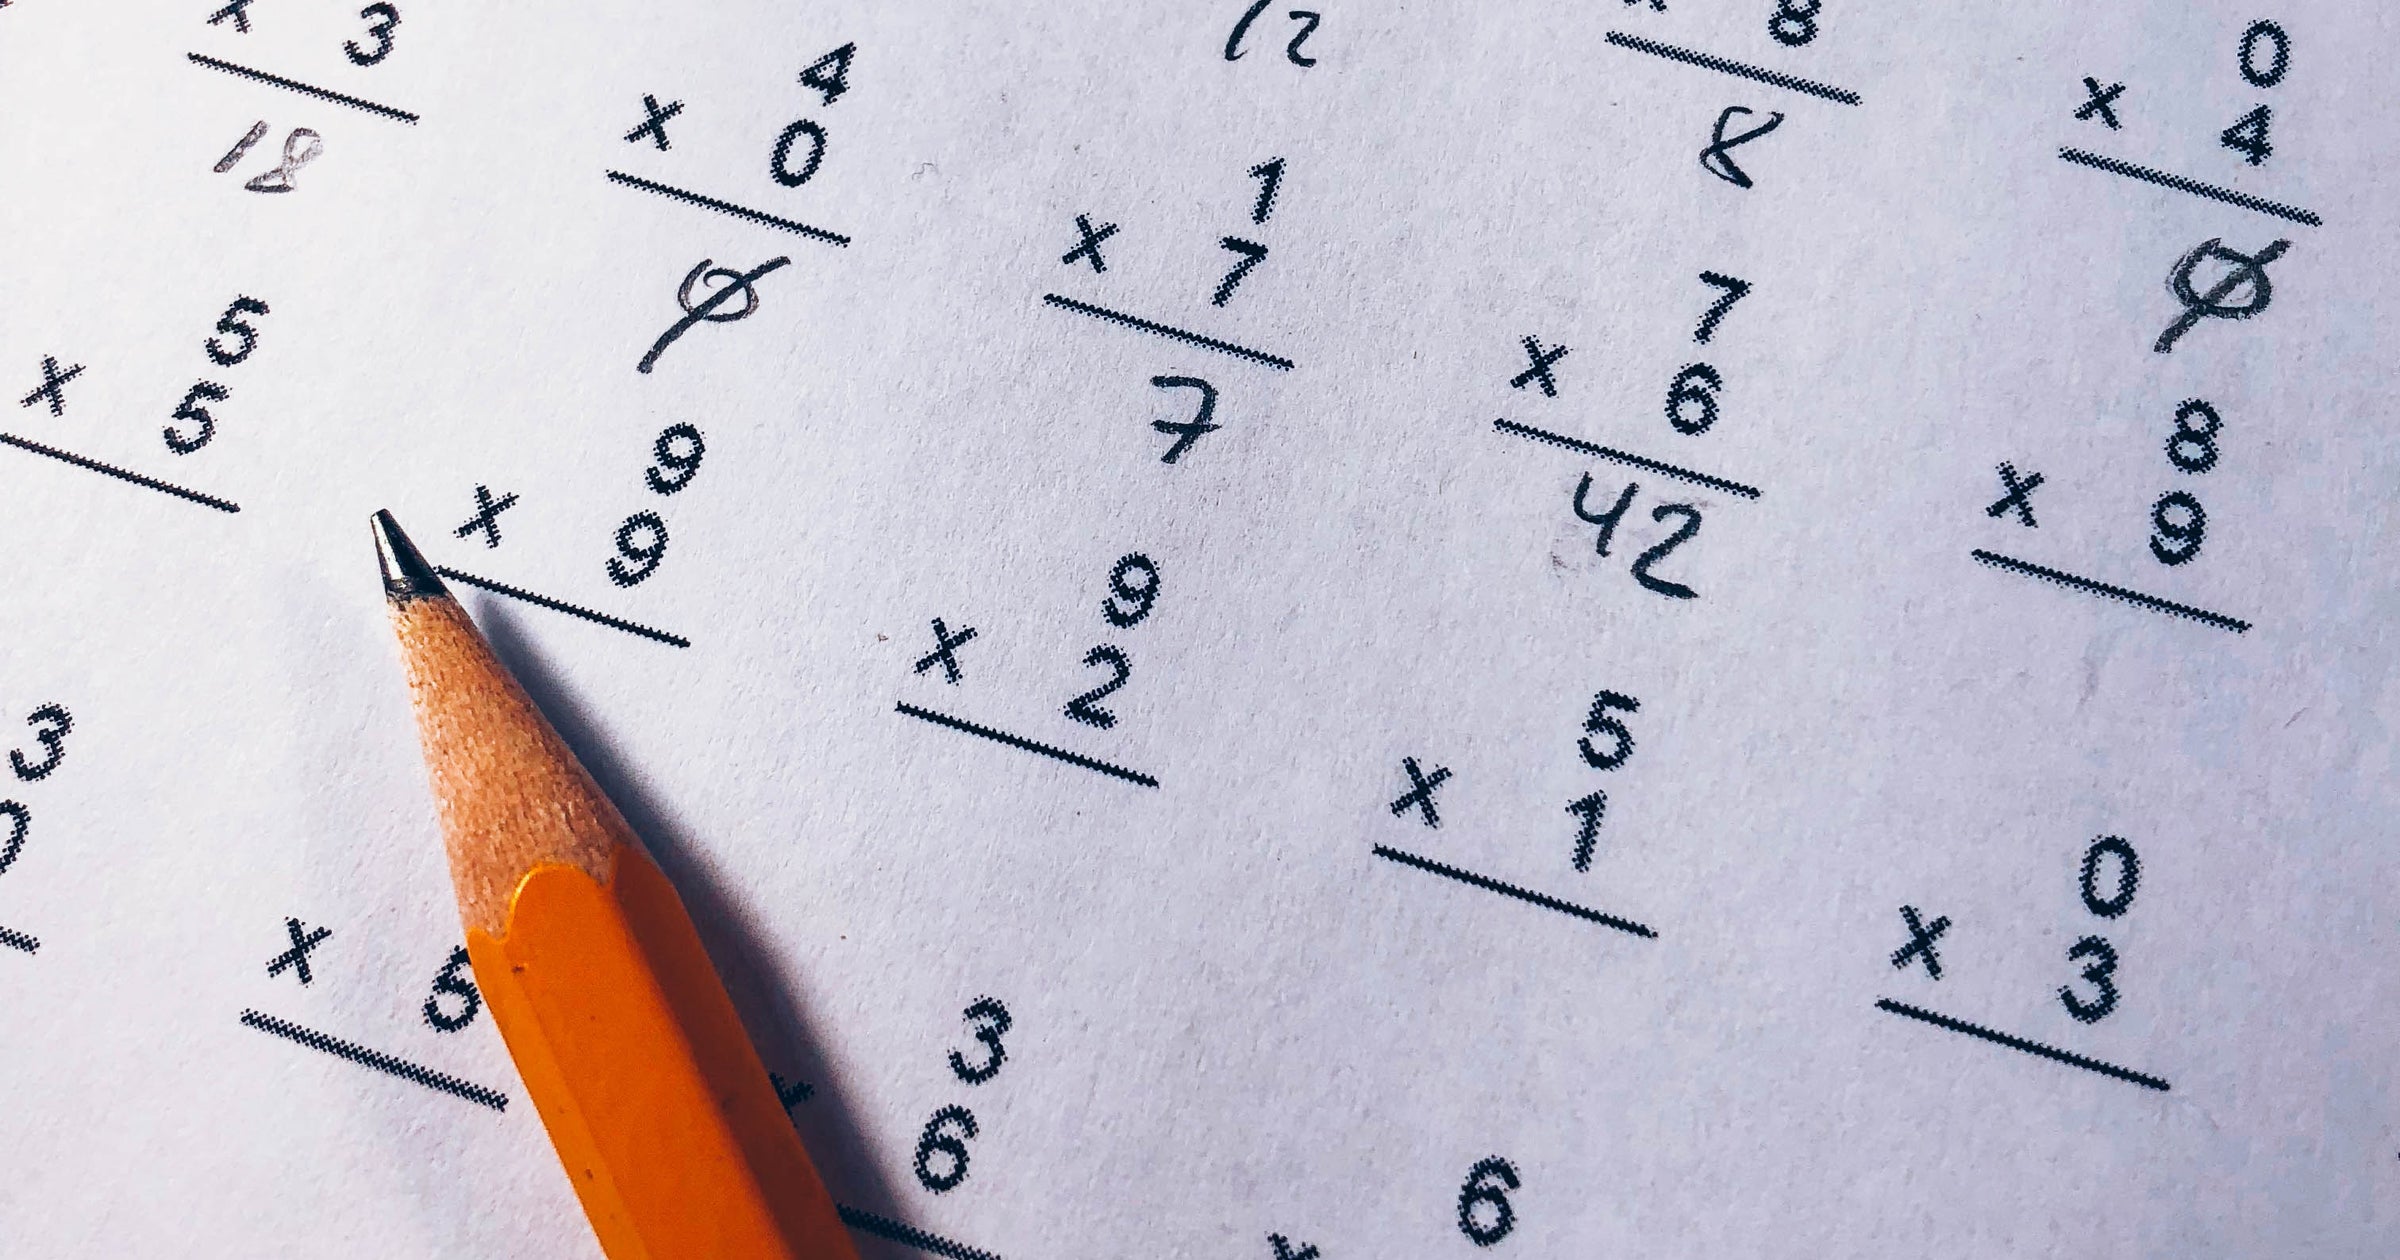 12
× 8
8
0
× 4
0
× 3
18
4
× 0
0
1
× 7
7
7
× 6
42
8
× 9
5
× 5
9
× 9
9
× 2
5
× 1
0
× 3
3
× 5
3
6
6